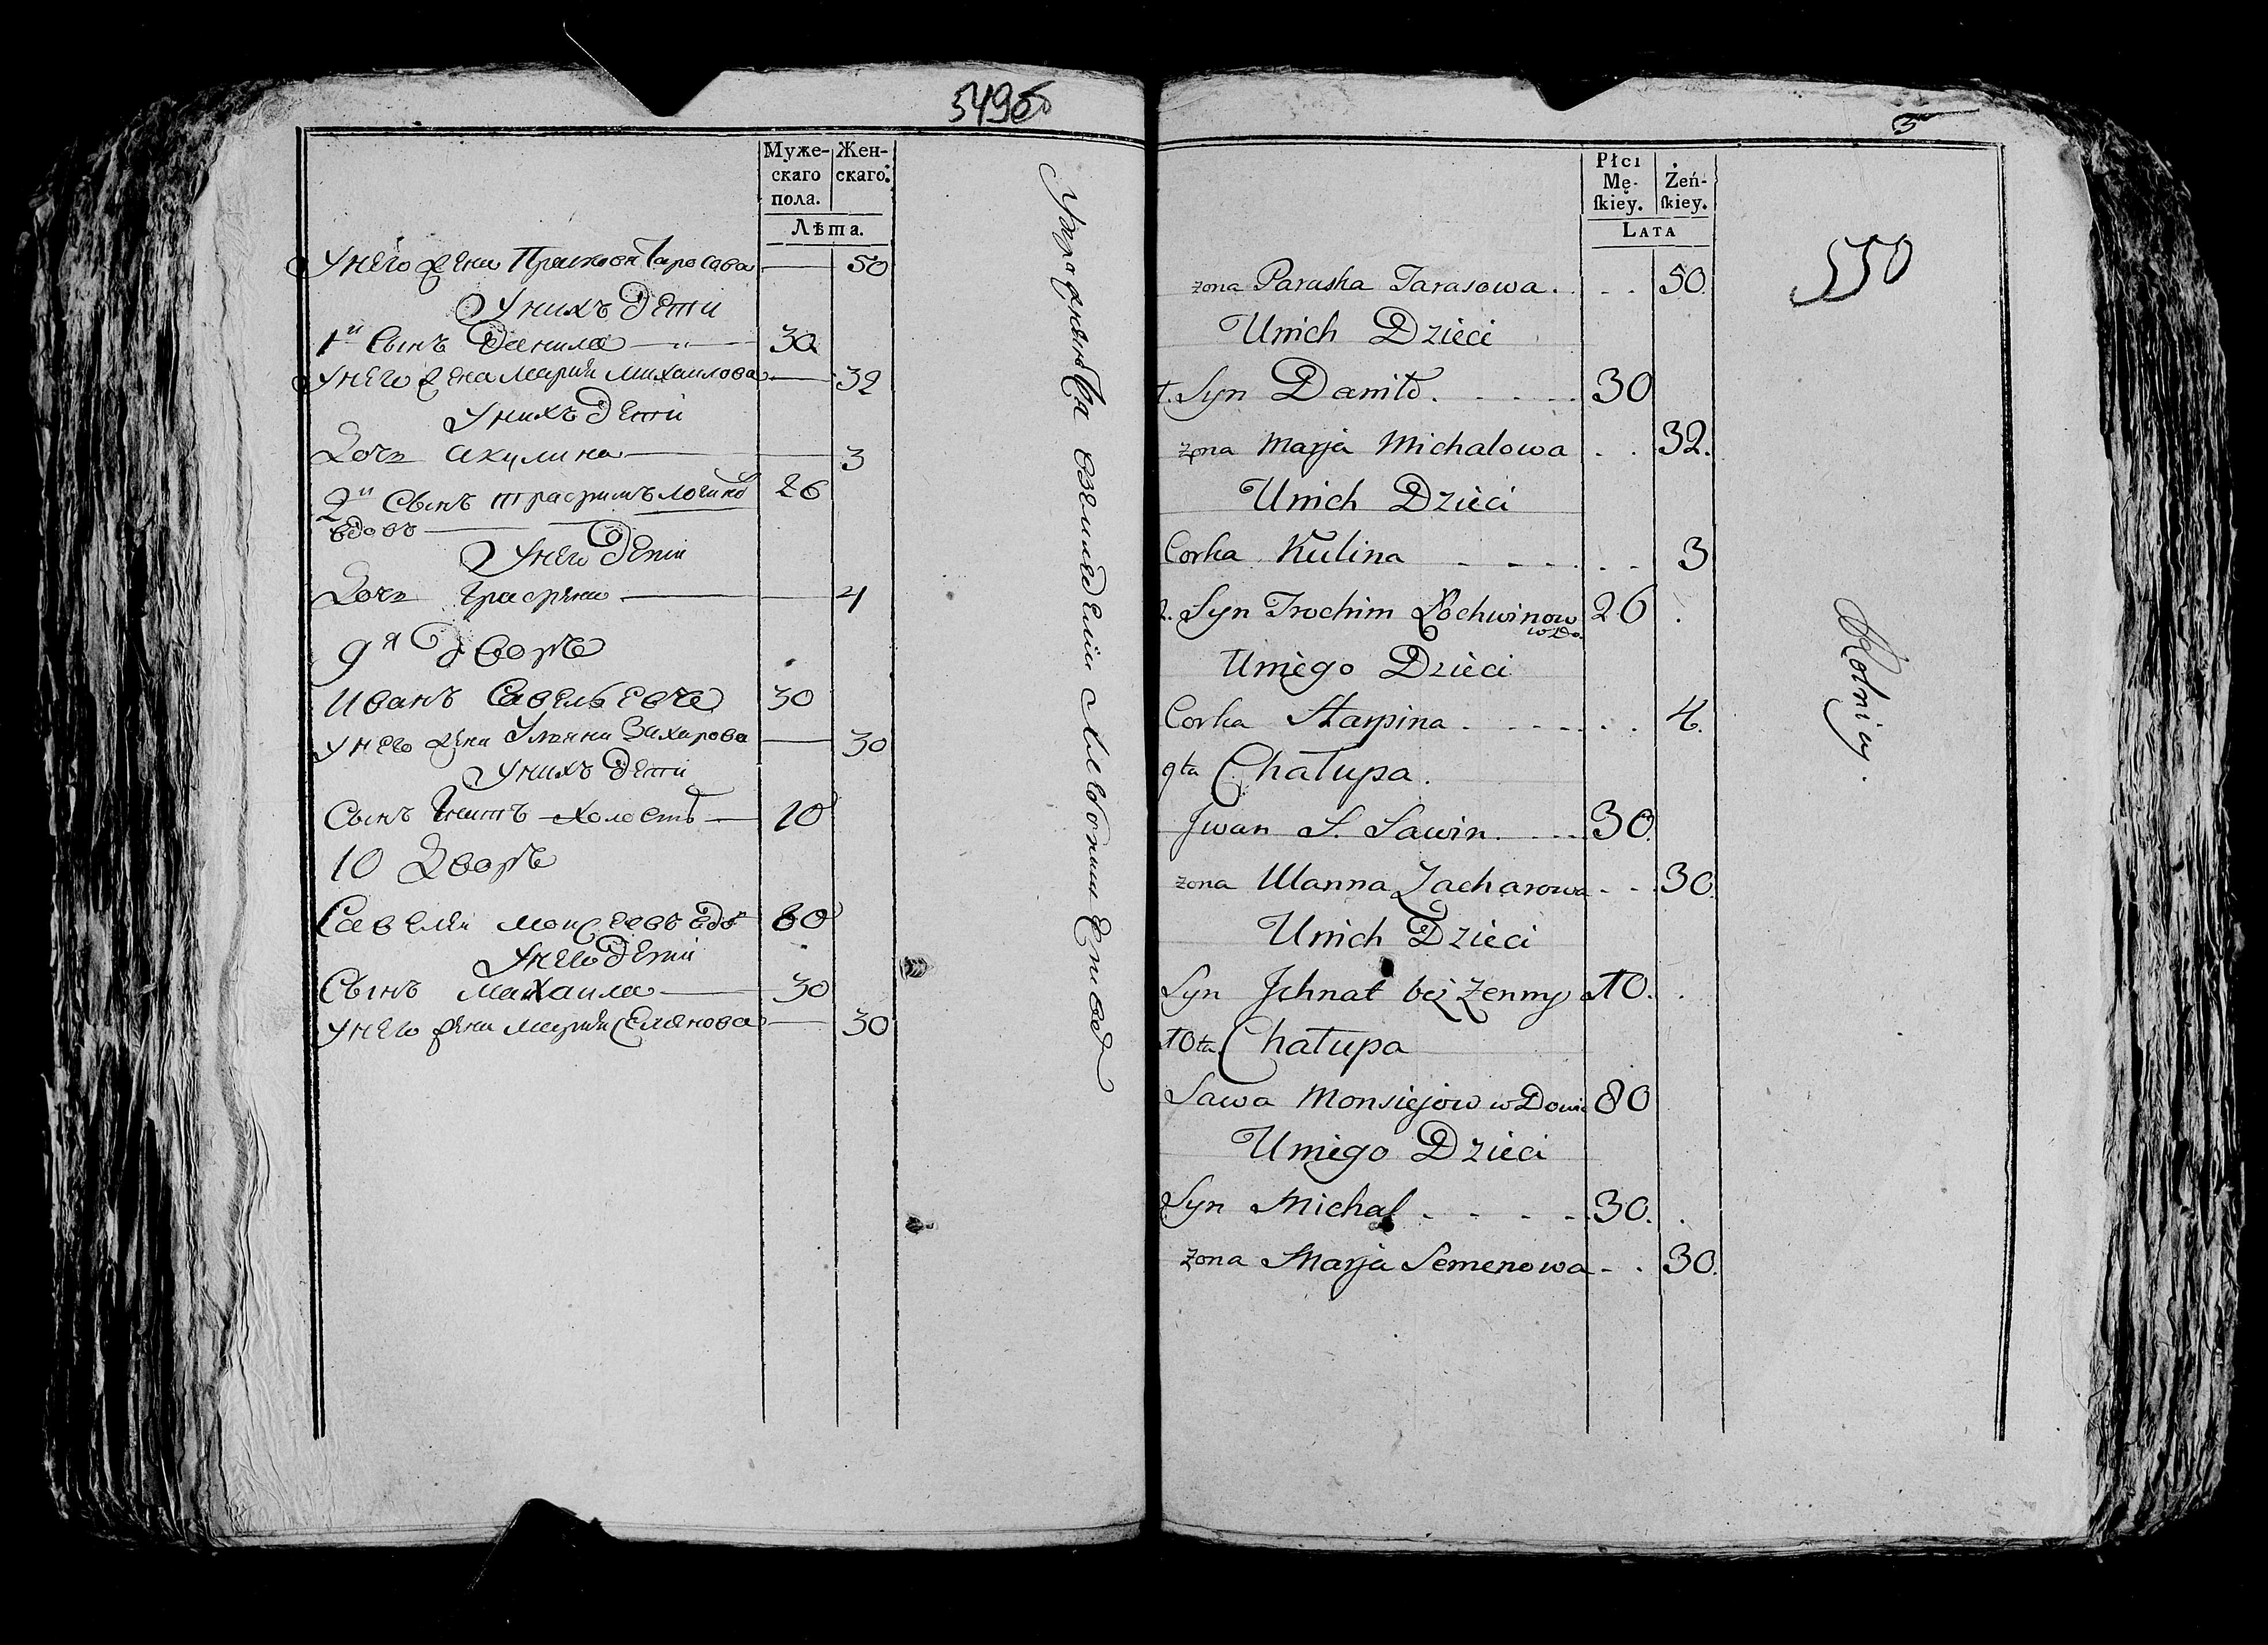 549об
Муже-
скаго
пола.
Жен-
скаго.
Лѣта.
Унего жена Прасковя Таросова 50
Унихъ Дети
1й Сынъ Данила 30
Унего жена Мария Михаилова 32
Унихъ Дети
Дочь Акулина 3
2й Сынъ Трафимъ Логино
вдовъ 26
Унего Дети
Дочь 4
9й Дворъ
Иванъ Савельевъ 30
Унего жена Ульяна Захарова 30
Унихъ Дети
Сынъ Игнатъ холостъ 10
10 Дворъ
Савели Моисеевъ вдо 80
Унего Дети
Сынъ Михаила 30
Унего жена Мария Семенова 30
УпражняюTся вземледелии хлебопашеСтвоД
3
Płci
Mę-
ſkiey.
Żeń-
ſkiey.
LATA
550
żona Paraska Tarasowa 50.
Unich Dzieci
1. Syn Daniło 30
żona Marja Michałowa 32.
Unich Dzieci
Corka Kulina 3
2. Syn Trochim Łochwinow wdo. 26
Uniego Dzieci
Corka Harpina 4.
9ta Chałupa.
Jwan S. Sawin 30.
żona Ulanna Zacharowa 30.
Unich Dzieci
Syn Jhnat bez żenny 10.
10ta Chałupa
Sawa Monsiejow wDowi 80
Uniego Dzieci
Syn Michał 30.
żona Marja Semenowa 30.
Rolnicy.